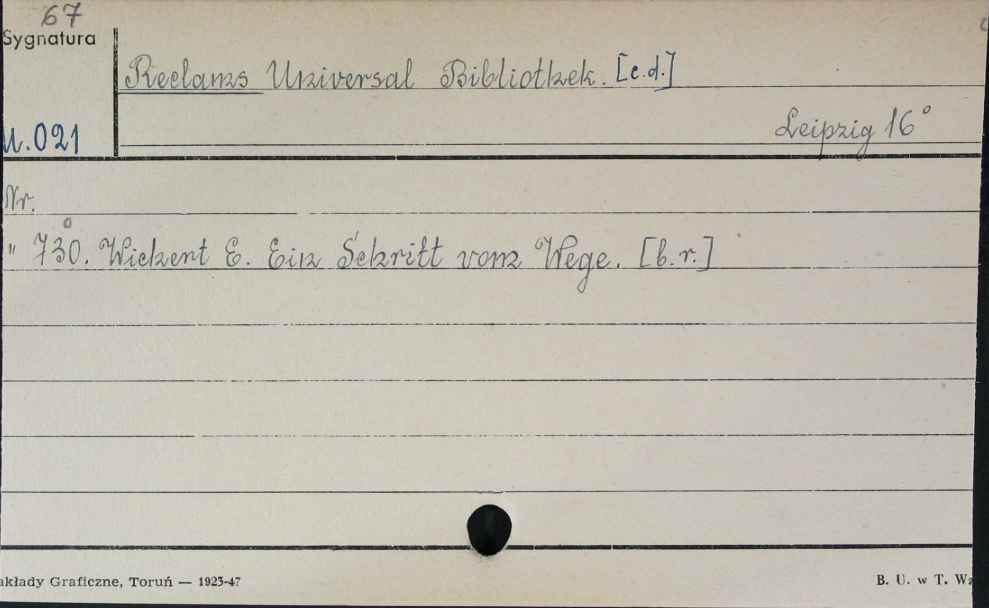 67
Sygnatura
Reclams Universal Bibliothek. [c.d.]
U.021
Leipzig 16°
Nr.
" 730. Wichert E. Ein Schritt vom Wege. [b.r.]
akłady Graficzne, Toruń — 1923-47
B. U. w T. Wz